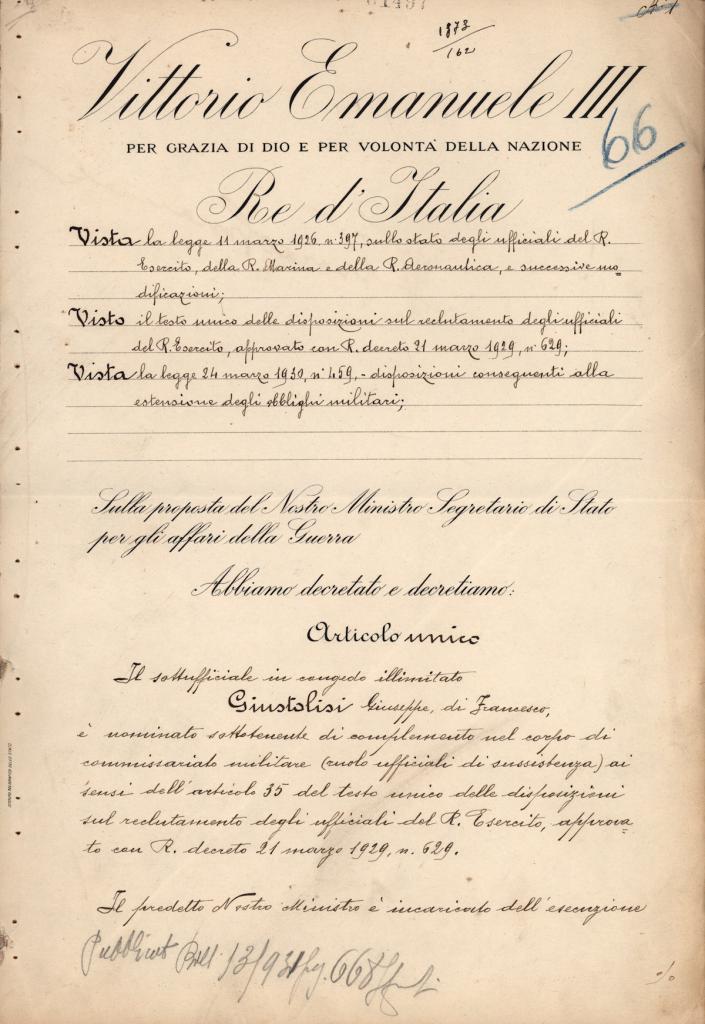 1873
162
Vittorio Emanuele III
66
PER GRAZIA DI DIO E PER VOLONTÀ DELLA NAZIONE
Re d'Italia
Vista la legge 11 marzo 1926, n. 397, sullo stato degli ufficiali del R.
Esercito, della R. Marina e della R. Aeronautica, e successive mo=
dificazioni;
Visto il testo unico delle disposizioni sul reclutamento degli ufficiali
del R. Esercito, approvato con R. decreto 21 marzo 1929, n. 629;
Vista la legge 24 marzo 1930, n. 459, - disposizioni conseguenti alla
estensione degli obblighi militari;
Sulla proposta del Nostro Ministro Segretario di Stato
per gli affari della Guerra
Abbiamo decretato e decretiamo:
Articolo unico
Il sottufficiale in congedo illimitato
Giustolisi Giuseppe, di Francesco,
è nominato sottotenente di complemento nel corpo di
commissariato militare (ruolo ufficiali di sussistenza) ai
sensi dell'articolo 35 del testo unico delle disposizioni
sul reclutamento degli ufficiali del R. Esercito, approva=
to con R. decreto 21 marzo 1929, n. 629.
Il predetto Nostro Ministro è incaricato dell'esecuzione
13/931 668
./.